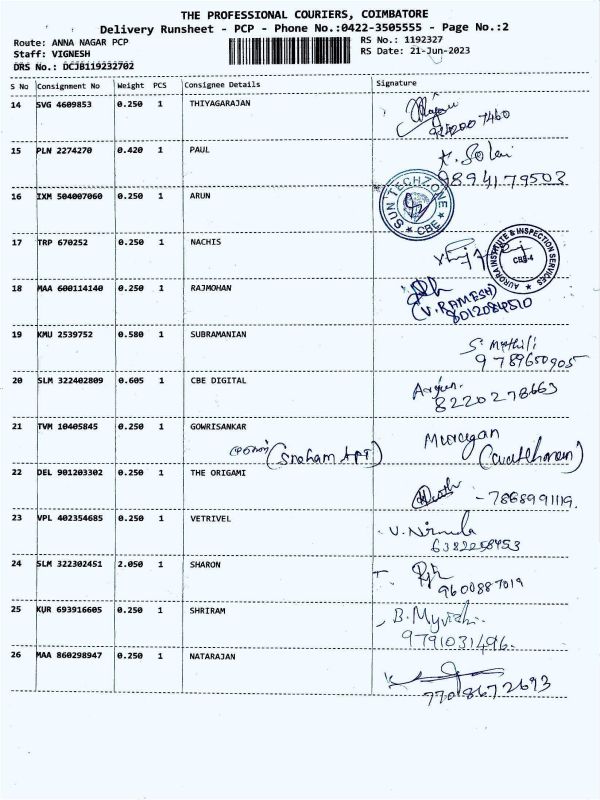 THE PROFESSIONAL COURIERS, COIMBATORE
Delivery Runsheet - PCP - Phone No.:0422-3505555 - Page No.:2
Route: ANNA NAGAR PCP
RS No.: 1192327
Staff: VIGNESH
RS Date: 21-Jun-2023
DRS No.: DCJB119232702
S No Consignment No Weight PCS Consignee Details Signature
14 SVG 4609853 0.250 1 THIYAGARAJAN
15 PLN 2274270 0.420 1 PAUL
9894179503
16 IXM 504007060 0.250 1 ARUN
SUN TECHZONE ★ CBE ★
17 TRP 670252 0.250 1 NACHIS
AURORA INSTITUTE & INSPECTION SERVICES ★ CBE-4
18 MAA 600114140 0.250 1 RAJMOHAN
(V.RAMESH)
8012084510
19 KMU 2539752 0.580 1 SUBRAMANIAN
S. Mythili
9789650905
20 SLM 322402809 0.605 1 CBE DIGITAL
Arjun.
8220278663
21 TVM 10405845 0.250 1 GOWRISANKAR
Murugan
(Snaham APT)
22 DEL 901203302 0.250 1 THE ORIGAMI
- 7868991119.
23 VPL 402354685 0.250 1 VETRIVEL
V. Nirmala
6382258453
24 SLM 322302451 2.050 1 SHARON
9600887019
25 KUR 693916605 0.250 1 SHRIRAM
9791031496.
26 MAA 860298947 0.250 1 NATARAJAN
7708672693